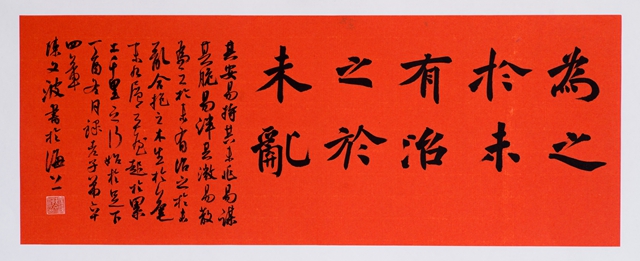 為之
於未
有治
之於
未亂
其安易持其未兆易謀
其脆易泮其微易散
為之於未有治之於未
亂合抱之木生於毫
末九層之臺起於累
土千里之行始於足下
丁酉月錄老子第六十
四章
陳文波書於海上